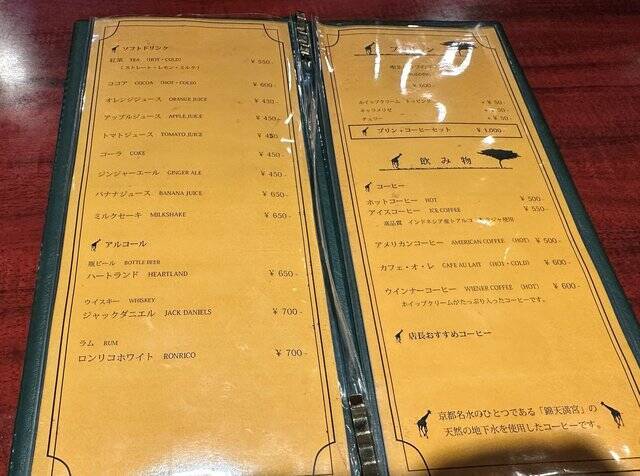 ソフトドリンク
紅茶 TEA (HOT・COLD) ¥ 550-
(ストレート・レモン・ミルク)
ココア COCOA (HOT・COLD) ¥ 600-
オレンジジュース ORANGE JUICE ¥ 450-
アップルジュース APPLE JUICE ¥ 450-
トマトジュース TOMATO JUICE ¥ 450-
コーラ COKE ¥ 450-
ジンジャーエール GINGER ALE ¥ 450-
バナナジュース BANANA JUICE ¥ 650-
ミルクセーキ MILKSHAKE ¥ 650-
アルコール
瓶ビール BOTTLE BEER
ハートランド HEARTLAND ¥ 650-
ウイスキー WHISKEY
ジャックダニエル JACK DANIELS ¥ 700-
ラム RUM
ロンリコホワイト RONRICO ¥ 700-
¥ 600-
ホイップクリーム トッピング +¥ 50-
キャラメリゼ +¥ 50-
チェリー +¥ 50-
プリン+コーヒーセット ¥ 1,000-
飲み物
コーヒー
ホットコーヒー HOT ¥ 500-
アイスコーヒー ICE COFFEE ¥ 550-
高品質 インドネシア産トアルコ 使用
アメリカンコーヒー AMERICAN COFFEE (HOT) ¥ 500-
カフェ・オ・レ CAFE AU LAIT (HOT・COLD) ¥ 600-
ウインナーコーヒー WIENER COFFEE (HOT) ¥ 600-
ホイップクリームがたっぷり入ったコーヒーです。
店長おすすめコーヒー
京都名水のひとつである「錦天満宮」の
天然の地下水を使用したコーヒーです。